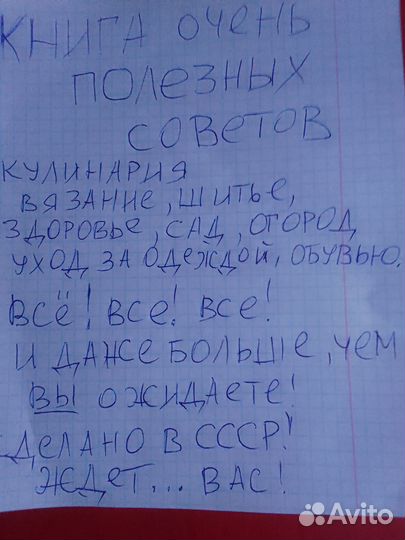 КНИГА ОЧЕНЬ
ПОЛЕЗНЫХ
СОВЕТОВ
КУЛИНАРИЯ
ВЯЗАНИЕ, ШИТЬЕ,
ЗДОРОВЬЕ, САД, ОГОРОД,
УХОД ЗА ОДЕЖДОЙ, ОБУВЬЮ.
ВСЁ! ВСЕ! ВСЕ!
И ДАЖЕ БОЛЬШЕ, ЧЕМ
ВЫ ОЖИДАЕТЕ!
ДЕЛАНО В СССР!
ЖДЕТ... ВАС!
Avito